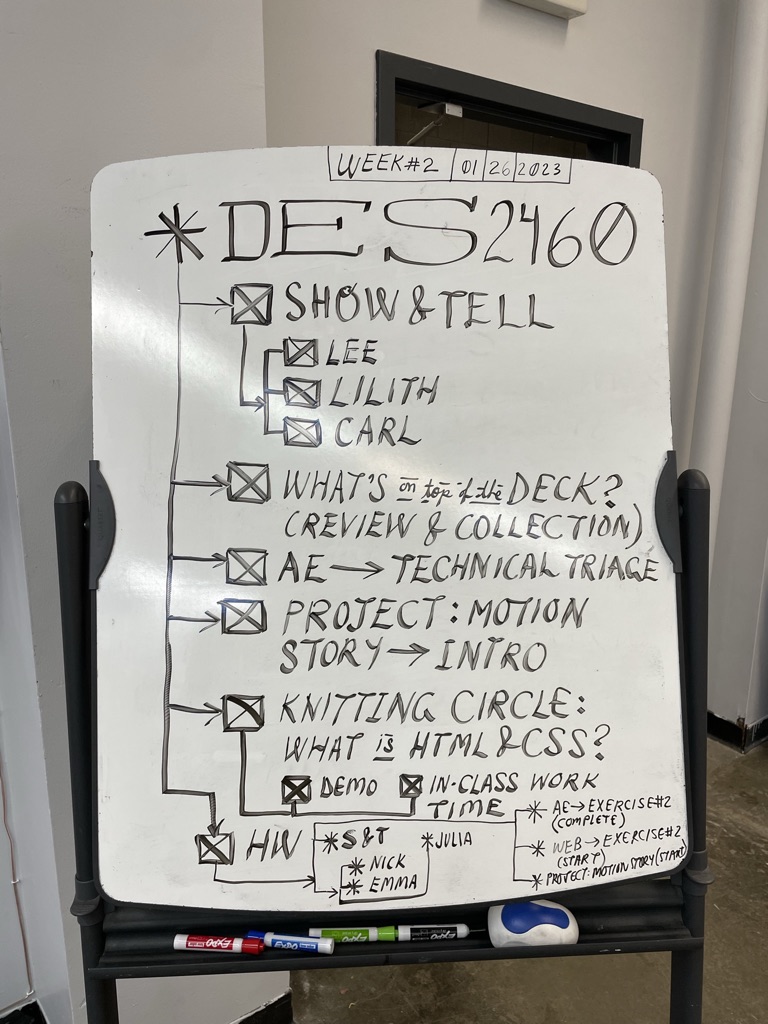 WEEK#2 01 26 2023
*DES2460
SHOW & TELL
LEE
LILITH
CARL
WHAT'S on top of the DECK?
(REVIEW & COLLECTION)
AE → TECHNICAL TRIAGE
PROJECT: MOTION
STORY → INTRO
KNITTING CIRCLE:
WHAT is HTML & CSS?
DEMO
IN-CLASS WORK
TIME
HW
*S&T
*NICK
*EMMA
*JULIA
*AE → EXERCISE#2
(COMPLETE)
*WEB → EXERCISE#2
(START)
*PROJECT: MOTION STORY (START)
EXPO
EXPO
EXPO
EXPO